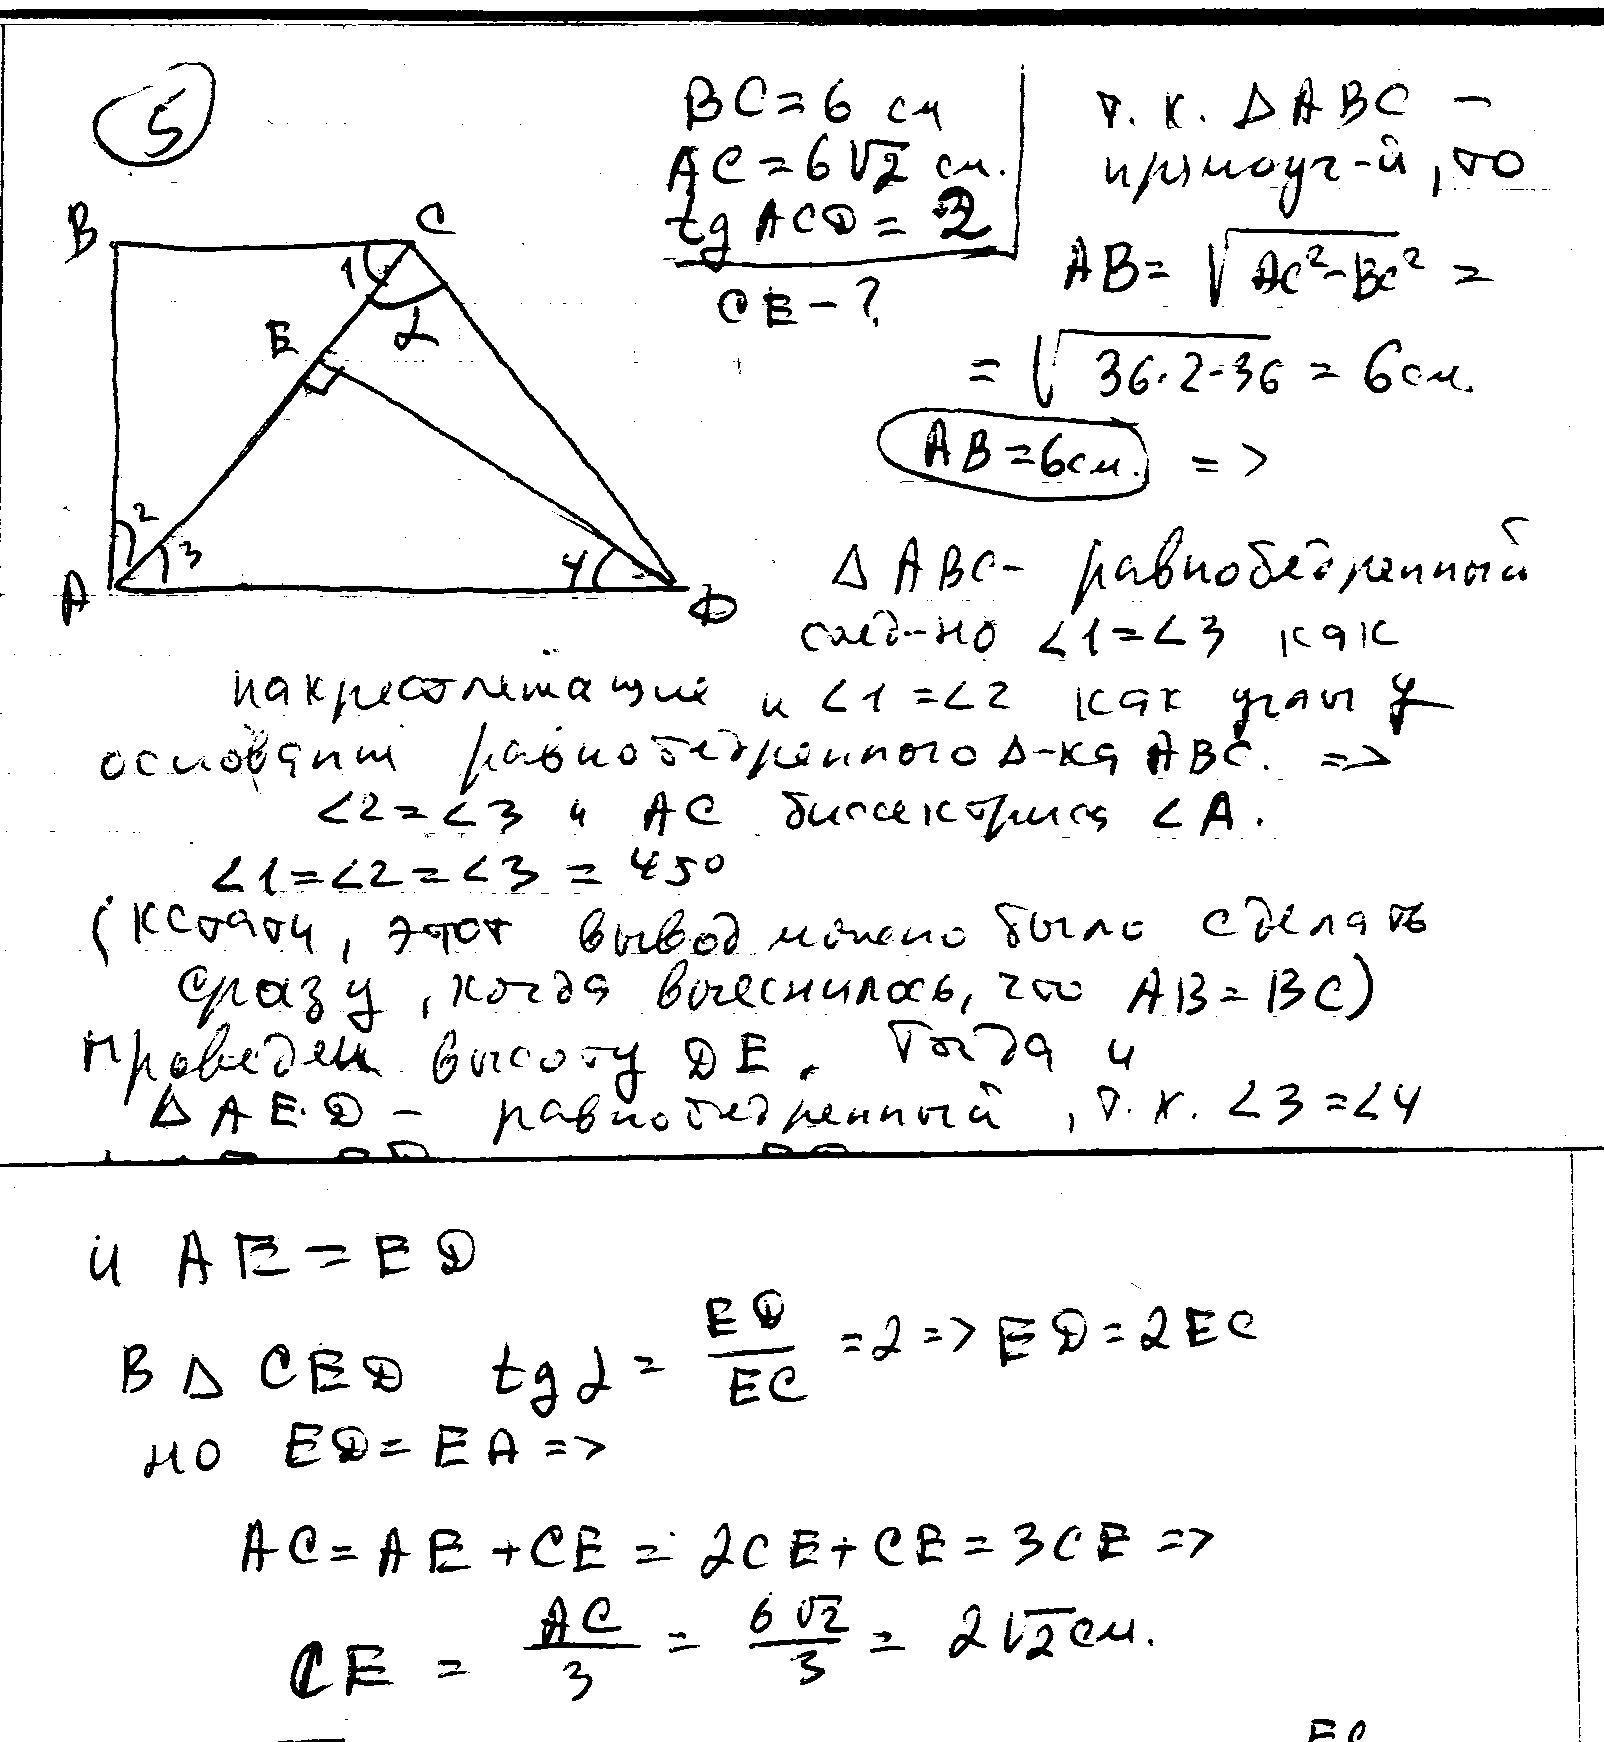 5
BC=6 см
AC=6√2 см.
tg ACD = 2
CE - ?
т.к. ΔABC -
прямоуг-й, то
AB = √(AC²-BC²) =
= √(36·2-36) = 6см.
AB=6см. =>
B
C
1
E
α
2
3
4
A
D
Δ ABC - равнобедренный
след-но ∠1=∠3 как
накрестлежащие и ∠1=∠2 как углы у
основания равнобедренного Δ-ка ABC. =>
∠2=∠3 и AC биссектриса ∠A.
∠1=∠2=∠3 = 45°
(кстати, этот вывод можно было сделать
сразу, когда выяснилось, что AB=BC)
Проведем высоту DE. Тогда и
Δ AED - равнобедренный, т.к. ∠3=∠4
и AE=ED
В Δ CED tg α = ED/EC = 2 => ED=2EC
но ED=EA =>
AC = AE + CE = 2CE + CE = 3CE =>
CE = AC/3 = 6√2/3 = 2√2 см.